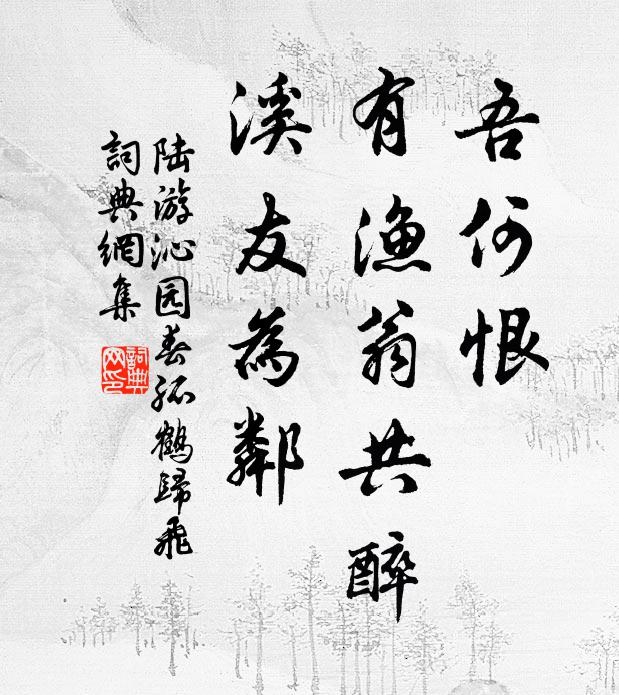 吾何恨
有漁翁共醉
溪友為鄰
陆游沁园春孤鶴歸飛
詞典網集
詞典网印